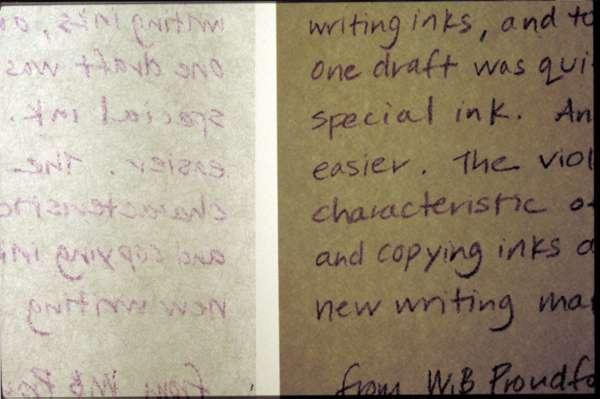 writing inks, an
one draft was
special ink.
easier. The
characteristic
and copying ink
new writing
from W.B Pro
writing inks, and to
one draft was qui
special ink. An
easier. The viol
characteristic o
and copying inks a
new writing ma
from W.B Proudfo